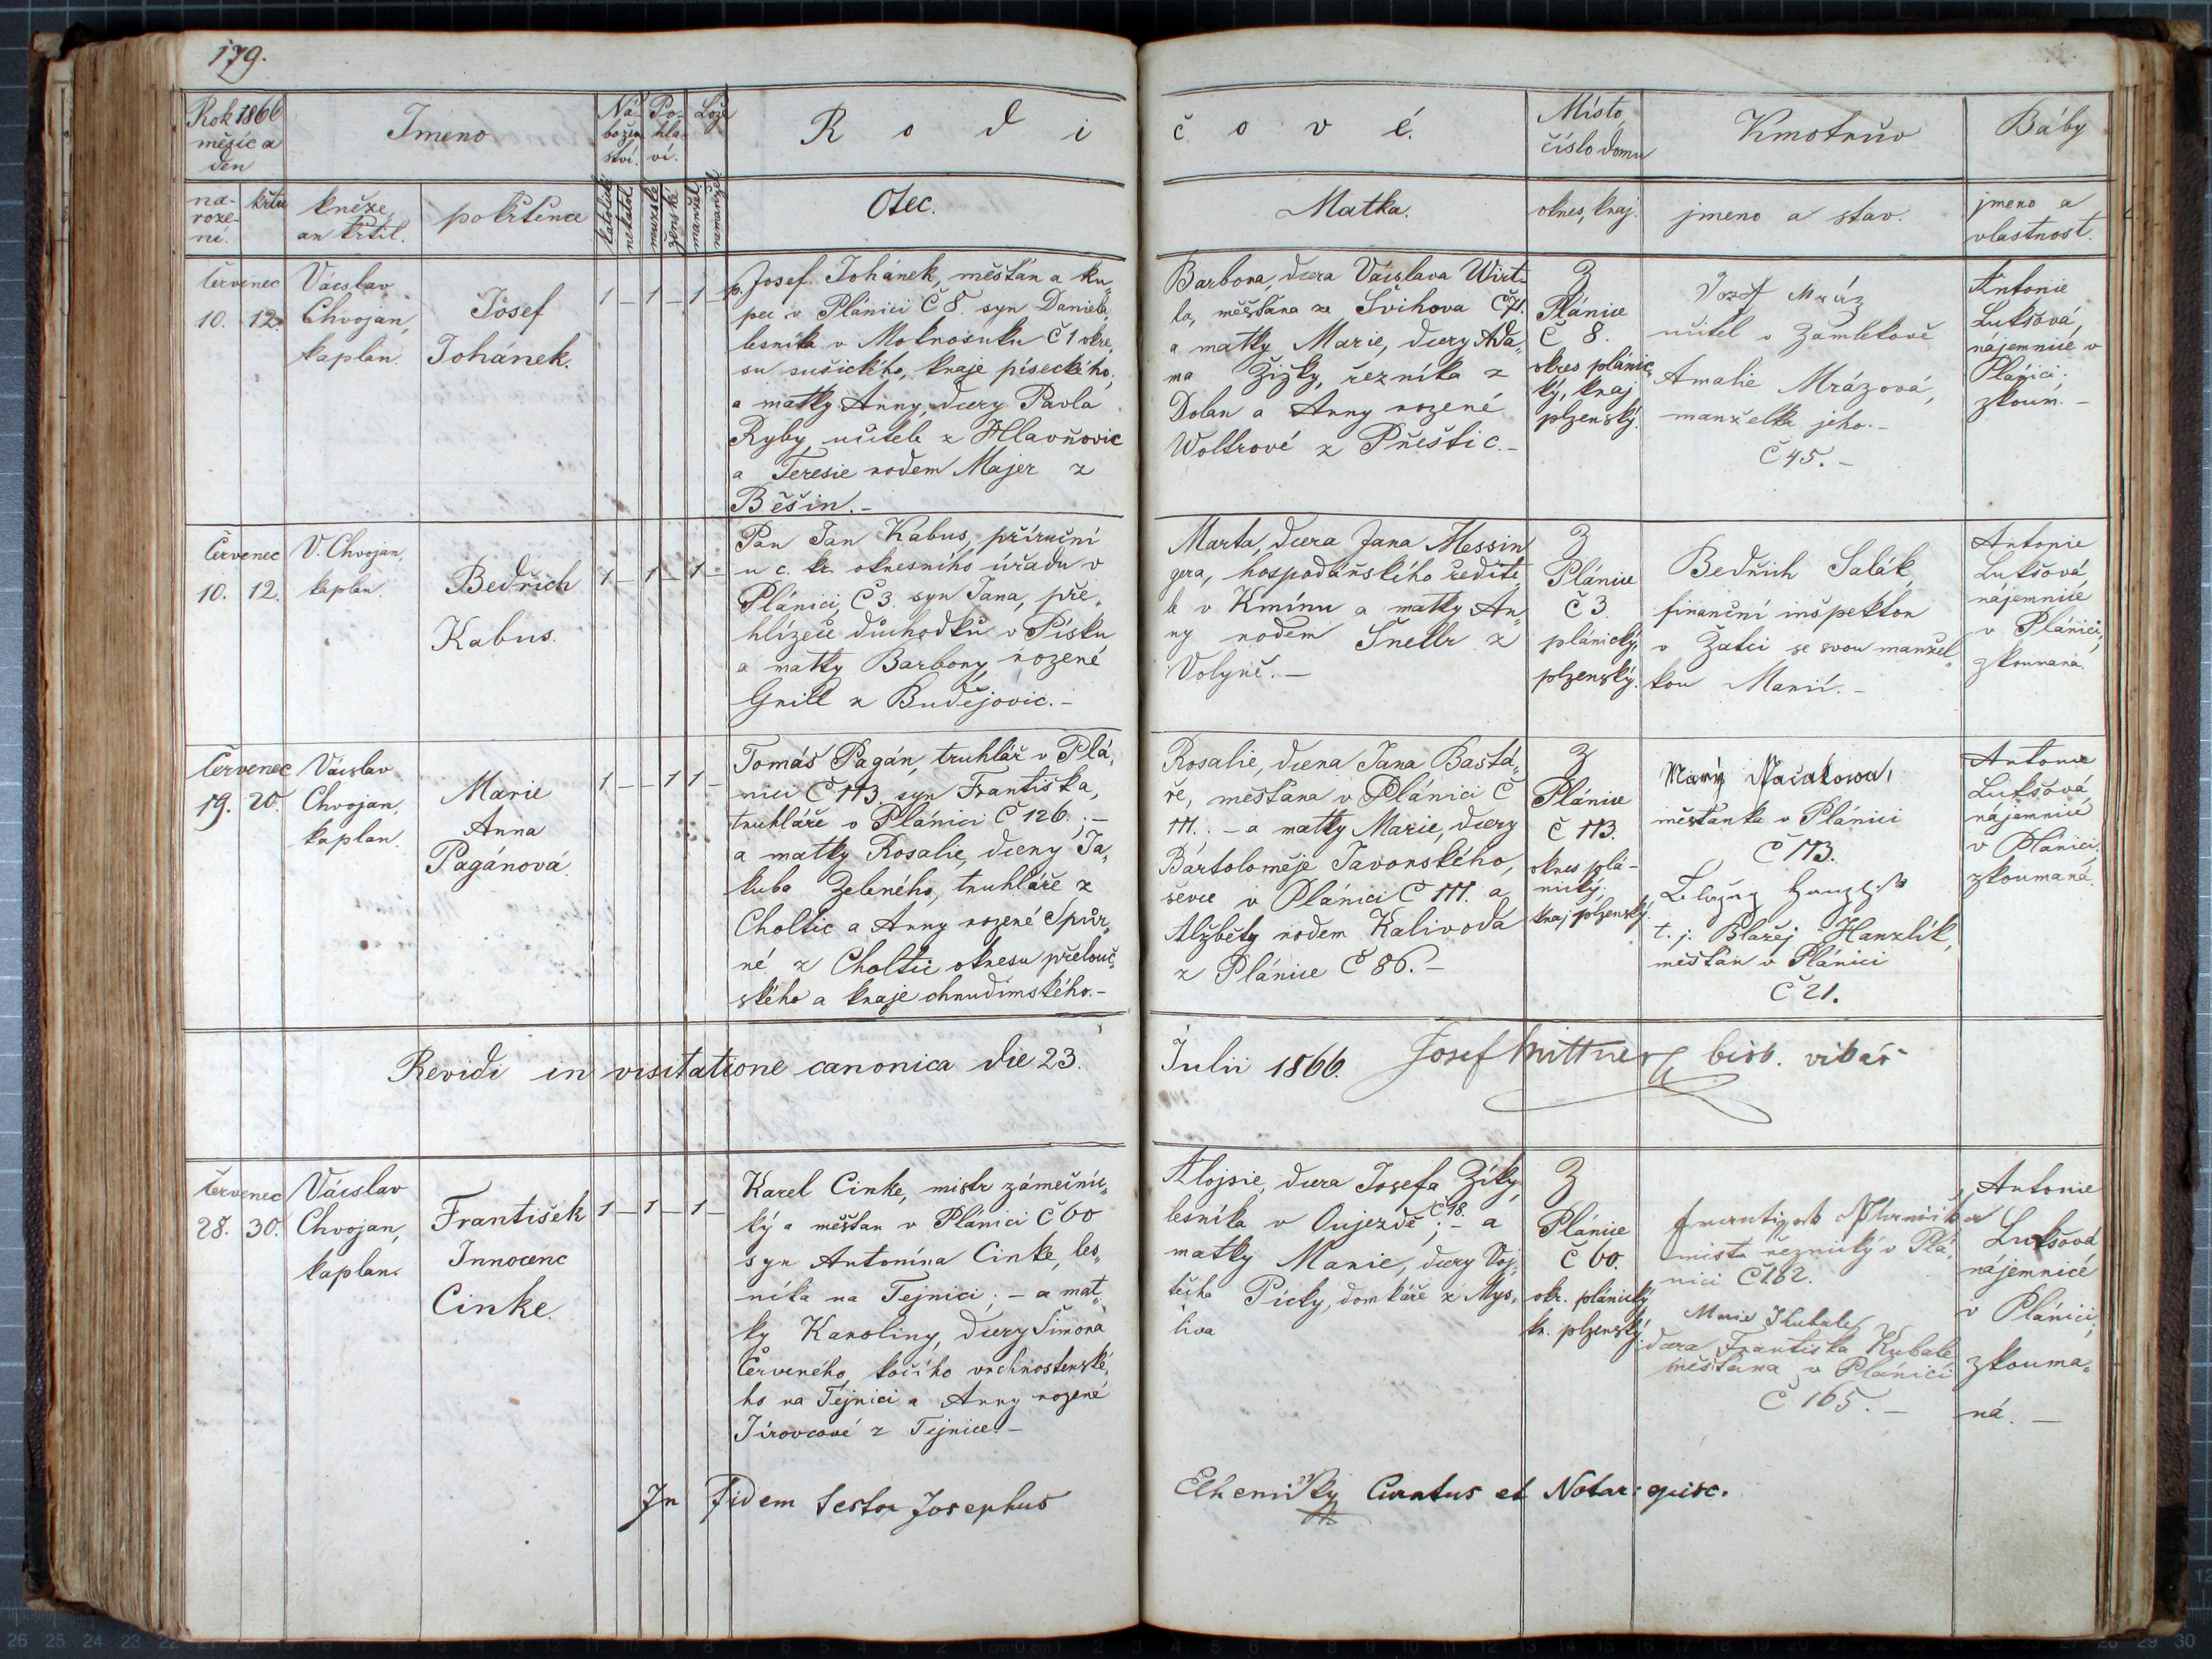 179.
Rok 1866
měsíc a
den
Jmeno
Ná-
božen
ství.
Po-
hla-
ví.
Lože
R o d i
č o v é.
Místo
číslo domu
Kmotrův
Báby
na-
roze-
ní.
křtu
kněze,
an křtil.
pokřtěnce
katolické
nekatol.
mužské
ženské
manžel.
nemanžel.
Otec.
Matka.
okres, kraj.
jmeno a stav.
jmeno a
vlastnost.
Červenec
10. 12.
Václav
Chvojan,
kaplan.
Josef
Johánek.
1 – 1 – 1 –
p. Josef Johánek, měšťan a ku„
pec v Plánici Č 8. syn Daniela,
lesníka v Mokrosuku Č 1 okre„
su sušického, kraje píseckého,
a matky Anny, dcery Pavla
Ryby, učitele z Hlavňovic
a Teresie rodem Majer z
Běšin.–
Barbora, dcera Václava Wirt–
la, měšťana ze Švihova Č 71.
a matky Marie, dcery Ada„
ma Žižky, řezníka z
Dolan a Anny rozené
Woltrové z Přeštic.–
Z
Plánice
Č 8.
okres plánic„
ký, kraj
plzenský.
Josef Mráz
učitel v Zámlekově
Amalie Mrázová,
manželka jeho.–
Č 45.–
Antonie
Lukšová,
nájemnice v
Plánici;
zkoum.–
Červenec
10. 12.
V. Chvojan,
kaplan.
Bedřich
Kabus.
1 – 1 – 1 –
Pan Jan Kabus, příruční
u c. k. okresního úřadu v
Plánici, Č 3. syn Jana, pře„
hlížeče důchodků v Písku
a matky Barbory, rozené
Grill z Budějovic.–
Marta, dcera Jana Messin
gera, hospodářského ředite„
le v Kmínu a matky An„
ny rodem Šnellr z
Volyně.–
Z
Plánice
Č 3
plánický,
plzenský.
Bedřich Salák,
finanční inšpektor
v Žatci se svou manžel„
kou Marií.–
Antonie
Lukšová,
nájemnice
v Plánici,
zkoumaná.
Červenec
19. 20.
Václav
Chvojan,
kaplan.
Marie
Anna
Pagánová.
1 – – 1 1 –
Tomáš Pagán, truhlář v Plá„
nici Č 113. syn Františka,
truhláře v Plánici Č 126.;–
a matky Rosalie, dcery Ja„
kuba Zeleného, truhláře z
Choltic a Anny rozené Spur„
né z Choltic okresu přelouč„
ského a kraje chrudimského.–
Rosalie, dcera Jana Bastá„
ře, měšťana v Plánici Č
111.;– a matky Marie, dcery
Bartoloměje Javorského,
ševce v Plánici Č 111. a
Alžběty rodem Kalivoda
z Plánice Č 86.–
Z
Plánice
Č 113.
okres plá–
nický.
kraj plzenský.
měšťanka v Plánici
Č 113.
t. j. Blažej Hanzlík,
měšťan v Plánici
Č 21.
Antonie
Lukšová
nájemnice
v Plánici,
zkoumaná.
Revidi in visitatione canonica die 23.
Julii 1866. Josef bisk. vikář
Červenec
28. 30.
Václav
Chvojan,
kaplan.
František
Innocenc
Cinke.
1 – 1 – 1 –
Karel Cinke, mistr zámečnic„
ký a měšťan v Plánici Č 60
syn Antonína Cinke, les„
níka na Tejnici;– a mat„
ky Karoliny, dcery Šimona
Červeného, kočího vrchnostenské„
ho na Tejnici a Anny rozené
Jírovcové z Tejnice.–
Alojsie, dcera Josefa Zíky,
lesníka v Oujezdě Č 18.;– a
matky Marie, dcery Voj„
těcha Picky, domkáře z Mys„
liva
Z
Plánice
Č 60.
okr. plánický
kr. plzenský.
mistr řeznický v Plá„
nici Č 162.
Marie Kubale
dcera Františka Kubale
měšťana v Plánici
Č 165.–
Antonie
Lukšová
nájemnice
v Plánici;
zkouma„
ná.–
In Fidem testor Josephus
Curatus et Notar: episc.